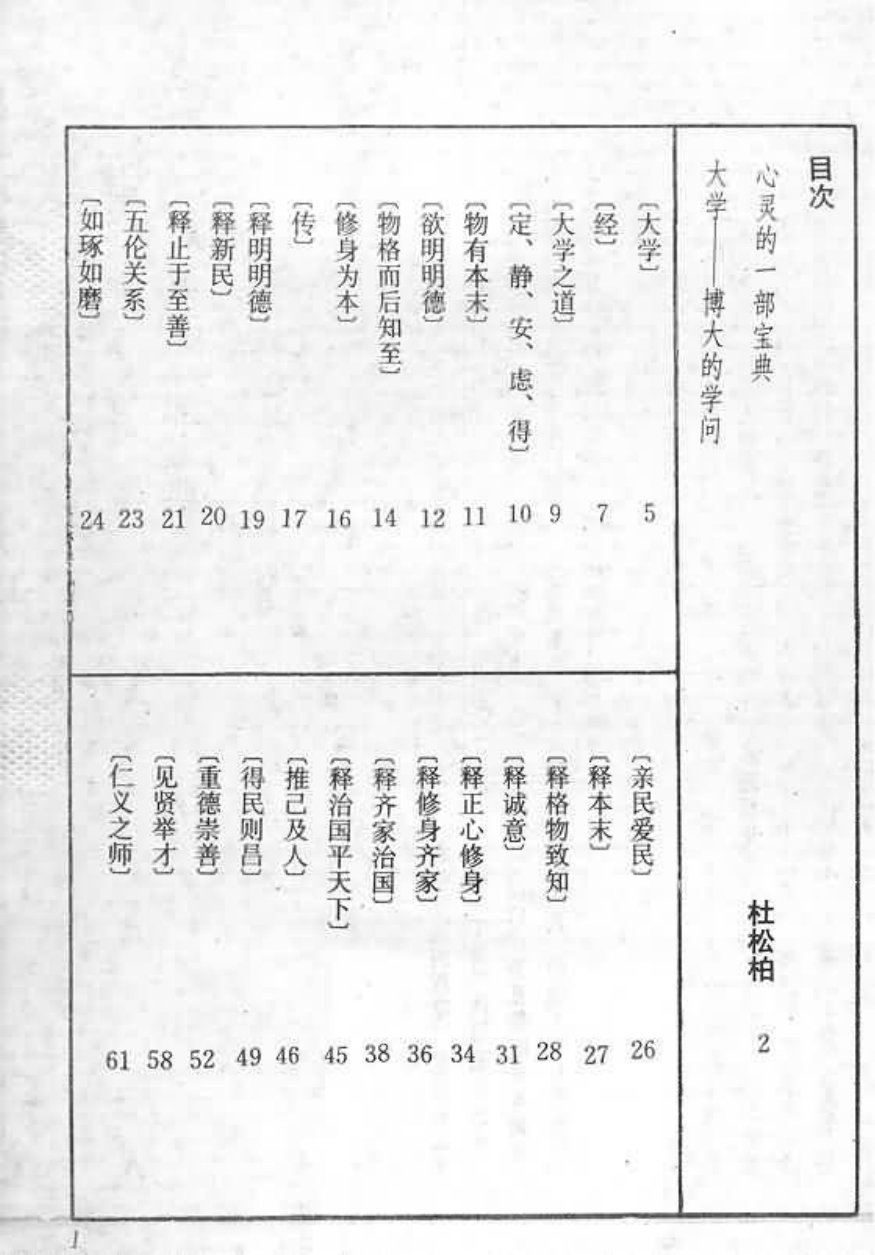 目次
心灵的一部宝典 杜松柏 2
大学——博大的学问
〔大学〕 5
〔经〕 7
〔大学之道〕 9
〔定、静、安、虑、得〕 10
〔物有本末〕 11
〔欲明明德〕 12
〔物格而后知至〕 14
〔修身为本〕 16
〔传〕 17
〔释明明德〕 19
〔释新民〕 20
〔释止于至善〕 21
〔五伦关系〕 23
〔如琢如磨〕 24
〔亲民爱民〕 26
〔释本末〕 27
〔释格物致知〕 28
〔释诚意〕 31
〔释正心修身〕 34
〔释修身齐家〕 36
〔释齐家治国〕 38
〔释治国平天下〕 45
〔推己及人〕 46
〔得民则昌〕 49
〔重德崇善〕 52
〔见贤举才〕 58
〔仁义之师〕 61
1